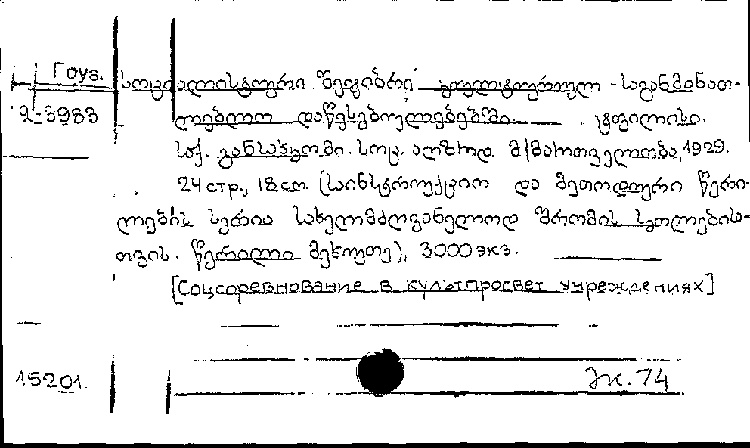 Груз. სოციალისტური შეჯიბრი კულტურულ-საგანმანათ-
2-5983 ლებლო დაწესებულებებში. ტფილისი.
საქ. განსახკომი. სოც. აღზრდ. მ/მართველობა, 1929.
24 стр., 18 см. (საინსტრუქციო და მეთოდური წერი-
ლების სერია სახელმძღვანელოდ შრომის სკოლების-
თვის. წერილი მეხუთე), 3000 экз.
[Соцсоревнование в культпросвет учреждениях]
15201. Эк. 74